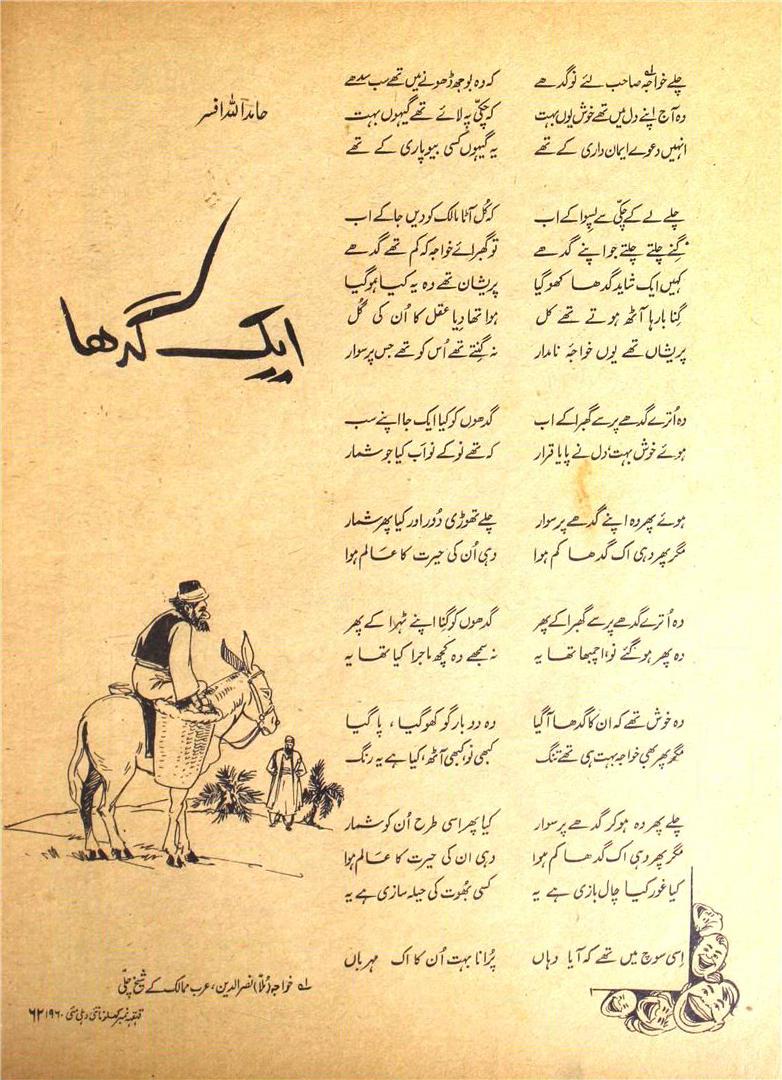 حامد اللہ افسر
ایک گدھا
چلے خواجہ صاحب لئے نو گدھے کہ وہ بوجھ ڈھونے میں تھے سب سدھے
وہ آج اپنے دل میں تھے خوش یوں بہت کہ چکّی پہ لائے تھے گیہوں بہت
انہیں دعوے ایمان داری کے تھے یہ گیہوں کسی بیوپاری کے تھے
چلے لے کے چکّی سے پسوا کے اب کہ کُل آٹا مالک کو دیں جا کے اب
گِنے چلتے چلتے جو اپنے گدھے تو گھبرائے خواجہ کہ کم تھے گدھے
کہیں ایک شاید گدھا کھو گیا پریشان تھے وہ یہ کیا ہو گیا
گِنا بارہا آٹھ ہوتے تھے کل ہوا تھا دِیا عقل کا اُن کی گُل
پریشاں تھے یوں خواجۂ نامدار نہ گنتے تھے اُس کو تھے جس پر سوار
وہ اُترے گدھے پر سے گھبرا کے اب گدھوں کو کیا ایک جا اپنے سب
ہوئے خوش بہت، دل نے پایا قرار کہ تھے نو کے نو اَب کیا جو شمار
ہوئے پھر وہ اپنے گدھے پر سوار چلے تھوڑی دُور اور کیا پھر شمار
مگر پھر وہی اک گدھا کم ہوا وہی اُن کی حیرت کا عَالم ہوا
وہ اُترے گدھے پر سے گھبرا کے پھر گدھوں کو گِنا اپنے ٹہرا کے پھر
وہ پھر ہو گئے نو، اچمبھا تھا یہ نہ سمجھے وہ کچھ ماجرا کیا تھا یہ
وہ خوش تھے کہ ان کا گدھا آ گیا وہ دو بار گو کھو گیا، پا گیا
مگر پھر بھی خواجہ بہت ہی تھے تنگ کبھی نو، کبھی آٹھ، کیا ہے یہ رنگ
چلے پھر وہ ہو کر گدھے پر سوار کیا پھر اسی طرح اُن کو شمار
مگر پھر وہی اک گدھا کم ہوا وہی ان کی حیرت کا عَالم ہوا
کیا غور کیا چال بازی ہے یہ کسی بھُوت کی حیلہ سازی ہے یہ
اِسی سوچ میں تھے کہ آیا وہاں پُرانا بہت اُن کا اک مہرباں
لہ خواجہ (مُلّا) نصر الدین، عرب ممالک کے شیخ چلّی
۶۲